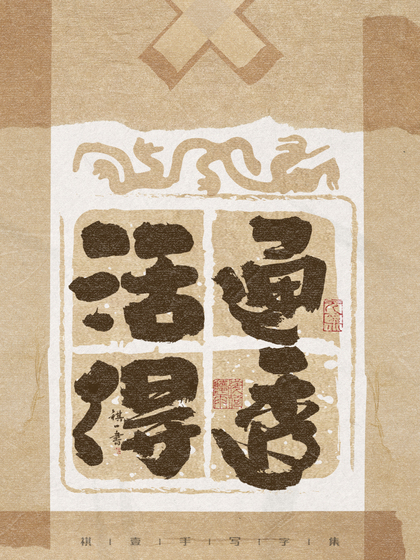 活得
通透
祺一書
祺｜壹｜手｜写｜字｜集